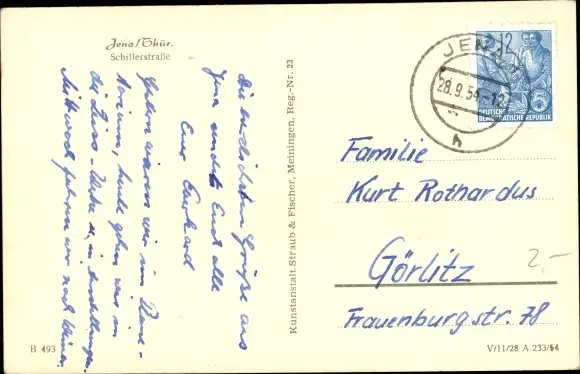 Jena/Thür.
Schillerstraße
Die herzlichsten Grüße aus
Jena sendet Euch alle
Euer Eberhard
Gestern waren wir im Plane-
tarium, heute gehen wir in
die Zeiss-Werke u. in Ausstellungen.
Mittwoch fahren wir nach Weimar.
B 493
Kunstanstalt Straub & Fischer, Meiningen, Reg.-Nr. 23
JENA
28.9.54.-12
h
12
5
DEUTSCHE
DEMOKRATISCHE REPUBLIK
Familie
Kurt Rothardus
Görlitz
Frauenburgstr. 78
2,-
V/11/28 A 233/54